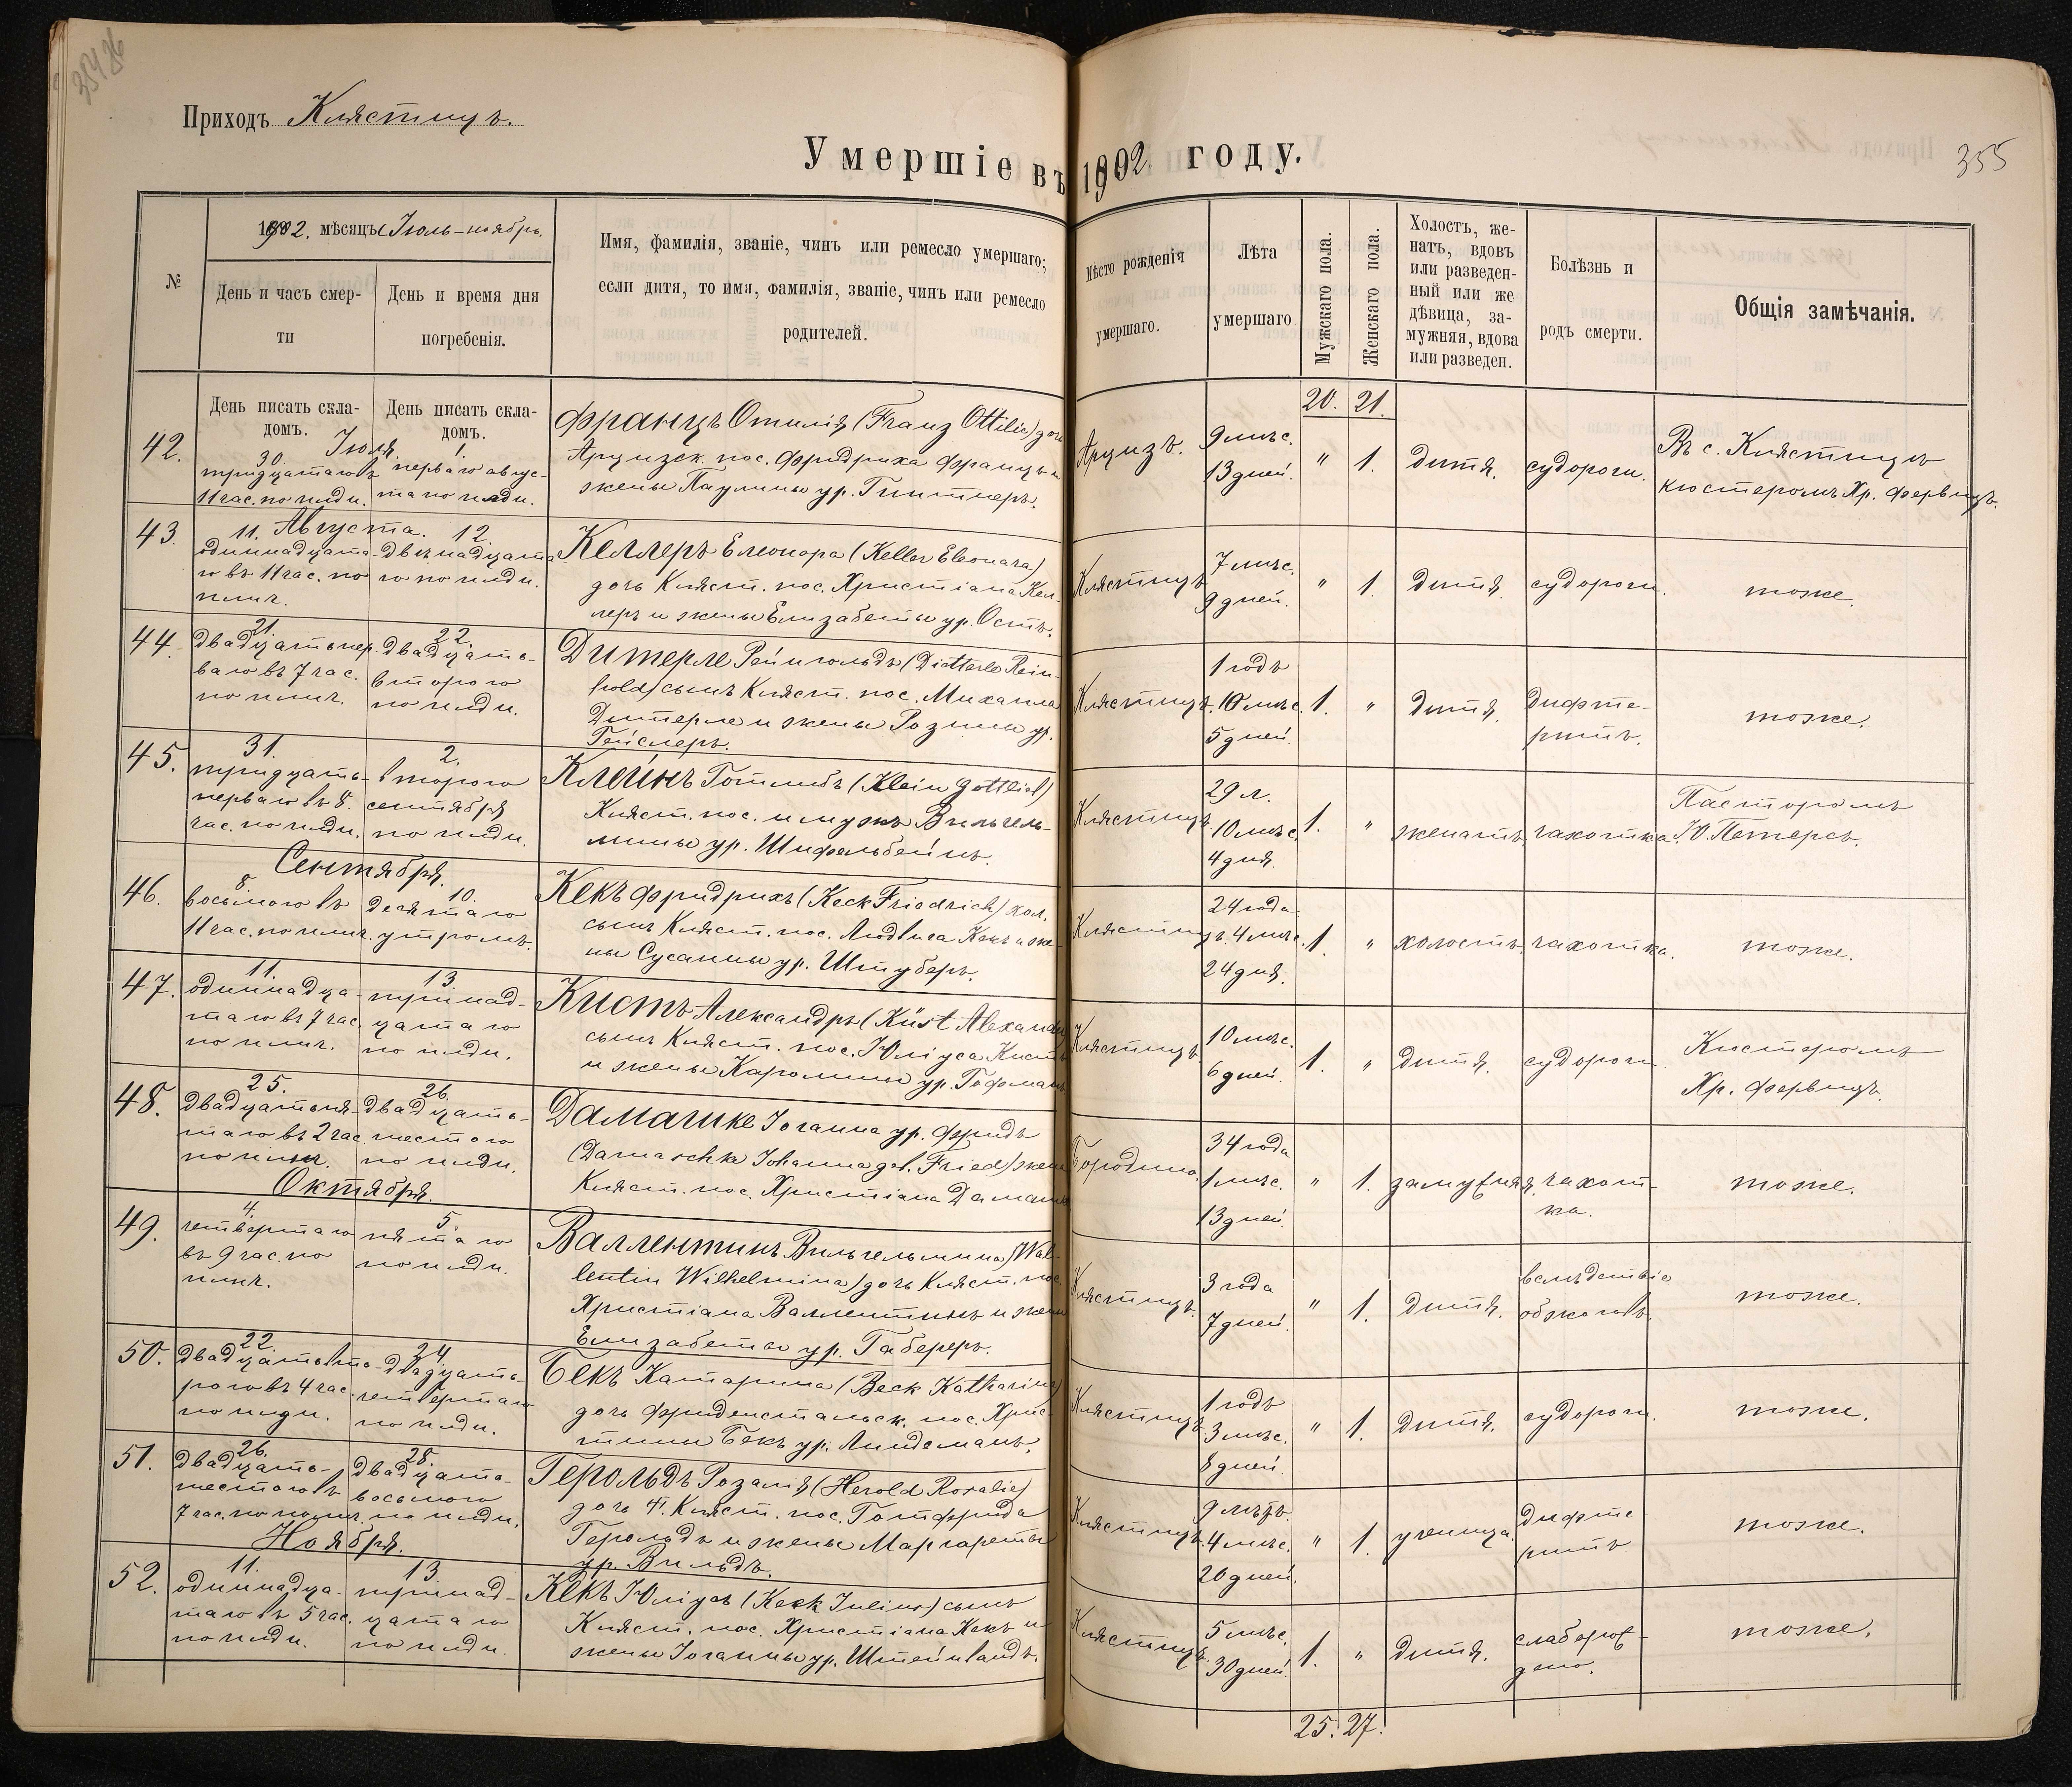 Приходъ Клястицъ.
Умершіе въ 1902 году.
355
№
1902. мѣсяцъ Іюль-ноябрь.
День и часъ смер-
ти
День и время дня
погребенія.
Имя, фамилія, званіе, чинъ или ремесло умершаго;
если дитя, то имя, фамилія, званіе, чинъ или ремесло
родителей.
Мѣсто рожденія
умершаго.
Лѣта
умершаго
Мужскаго пола.
Женскаго пола.
Холостъ, же-
натъ, вдовъ
или разведен-
ный или же
дѣвица, за-
мужняя, вдова
или разведен.
Болѣзнь и
родъ смерти.
Общія замѣчанія.
День писать скла-
домъ.
День писать скла-
домъ.
20. 21.
42.
Іюля.
30.
тридцатаго въ
11 час. по плдн.
1.
перваго авгус-
та по плдн.
Францъ Отилія (Franz Ottilie) дочь
Арцизск. пос. Фридриха Францъ и
жены Паулины ур. Гинтнеръ.
Арцизъ.
9 мѣс.
13 дней.
" 1.
дитя.
судороги.
Въ с. Клястицъ
кюстеромъ Хр. Фервицъ.
43.
Августа.
11.
одиннадцата-
го въ 11 час. по
плнч.
12.
двѣнадцата
го по плдн.
Келлеръ Елеонора (Keller Eleonara)
дочь Кляст. пос. Христіана Кел-
леръ и жены Елизабеты ур. Остъ.
Клястицъ
7 мѣс.
9 дней.
" 1.
дитя.
судороги.
тоже.
44.
21.
двадцать пер-
ваго въ 7 час.
по плнч.
22.
двадцать-
второго
по плдн.
Дитерле Рейнгольдъ (Dietterle Rein-
hold) сынъ Кляст. пос. Михаила
Дитерле и жены Розины ур.
Гейслеръ.
Клястицъ.
1 годъ
10 мѣс.
5 дней.
1. "
дитя.
дифте-
ритъ.
тоже.
45.
31.
тридцать-
перваго въ 8.
час. по плдн.
2.
второго
сентября
по плдн.
Клейнъ Готлибъ (Klein Gottlieb)
Кляст. пос. и мужъ Вильгель-
мины ур. Шифельбейнъ.
Клястицъ.
29 л.
10 мѣс.
4 дня.
1. "
женатъ.
чахотка.
Пасторомъ
Ю. Петерсъ.
Сентября.
46.
8.
восьмого въ
11 час. по плнч.
10.
десятаго
утромъ.
Кекъ Фридрихъ (Keck Friedrich) хол.
сынъ Кляст. пос. Людвига Кекъ и же-
ны Сусанны ур. Штуберъ.
Клястицъ.
24 года
4 мѣс.
24 дня.
1. "
холостъ.
чахотка.
тоже.
47.
11.
одиннадца-
таго въ 7 час.
по плнч.
13.
тринад-
цатаго
по плдн.
Кистъ Александръ (Küst Alexander
сынъ Кляст. пос. Юліуса Кистъ
и жены Каролины ур. Гофманъ
Клястицъ
10 мѣс.
6 дней.
1. "
дитя.
судороги
Кюстеромъ
Хр. Фервицъ.
48.
25.
двадцать пя-
таго въ 2 час.
по плнч.
26.
двадцать-
шестого
по плдн.
Дамашке Іоганна ур. Фридъ
(Damaschke Johanna geb. Fried) жена
Кляст. пос. Христіана Дамашке
Бородино.
34 года
1 мѣс.
13 дней.
" 1.
замужняя.
чахот-
ка.
тоже.
Октября.
49.
4.
четвертаго
въ 9 час. по
плнч.
5.
пятаго
по плдн.
Валлентинъ Вильгельмина (Wal-
lentin Wilhelmina) дочь Кляст. пос.
Христіана Валлентинъ и жены
Елизабеты ур. Габереръ.
Клястицъ.
3 года
7 дней.
" 1.
дитя.
вслѣдствіе
обжоговъ.
тоже.
50.
22.
двадцать вто-
рого въ 4 час.
по плдн.
24.
двадцать-
четвертаго
по плдн.
Бекъ Катарина (Beck Katharina)
дочь Фриденстальск. пос. Хрис-
тины Бекъ ур. Линдеманъ.
Клястицъ.
1 годъ
3 мѣс.
8 дней.
" 1.
дитя.
судороги.
тоже.
51.
26.
двадцать-
шестого въ
7 час. по полнч.
28.
двадцать-
восьмого
по плдн.
Герольдъ Розалія (Herold Rosalie)
дочь Кляст. пос. Готфрида
Герольдъ и жены Маргареты
ур. Вильдъ.
Клястицъ.
9 лѣтъ.
4 мѣс.
20 дней.
" 1.
ученица.
дифте
ритъ.
тоже.
Ноября.
52.
11.
одиннадца-
таго въ 5 час.
по плдн.
13
тринад-
цатаго
по плдн.
Кекъ Юліусъ (Keck Julius) сынъ
Кляст. пос. Христіана Кекъ и
жены Іоганны ур. Штейнландъ.
Клястицъ.
5 мѣс.
30 дней.
1. "
дитя.
слаборож-
дено.
тоже.
25. 27.